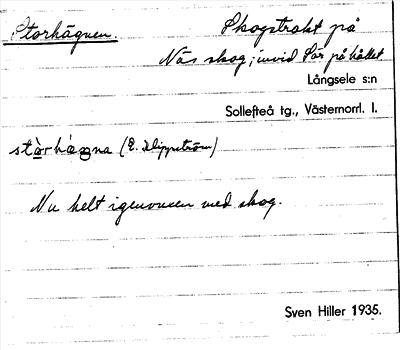 Storhägnen. Skogstrakt på
Näs skog; invid
Långsele s:n
Sollefteå tg., Västernorrl. l.
(E. Klippström)
Nu helt igenvuxen med skog.
Sven Hiller 1935.